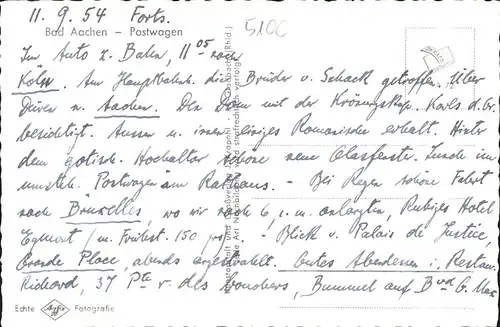 11. 9. 54 Forts.
5100
Bad Aachen – Postwagen
Im Auto z. Bahn, 11 05 nach
Köln. Am Hauptbahnh. die Brüder v. Schack getroffen. Über
Düren n. Aachen. Den Dom mit der Krönungskap. Karls d. Gr.
besichtigt. Aussen u. innen einziges Romanische erhalt. Hinter
dem gotisch. Hochaltar schöne neue Glasfenster. Lunch im
Postwagen am Rathaus. – Bei Regen schöne Fahrt
nach Bruxelles wo wir nach 6 anlangten, Ruhiges Hotel
Egmont (m. Frühst. 150 – Blick v. Palais de Justice,
Grande Place, abends angestrahlt. Gutes Abendessen i. Restau.
Richard, 37 r. des Bouchers, Bummel auf Bvd
Echte Agfa Fotografie